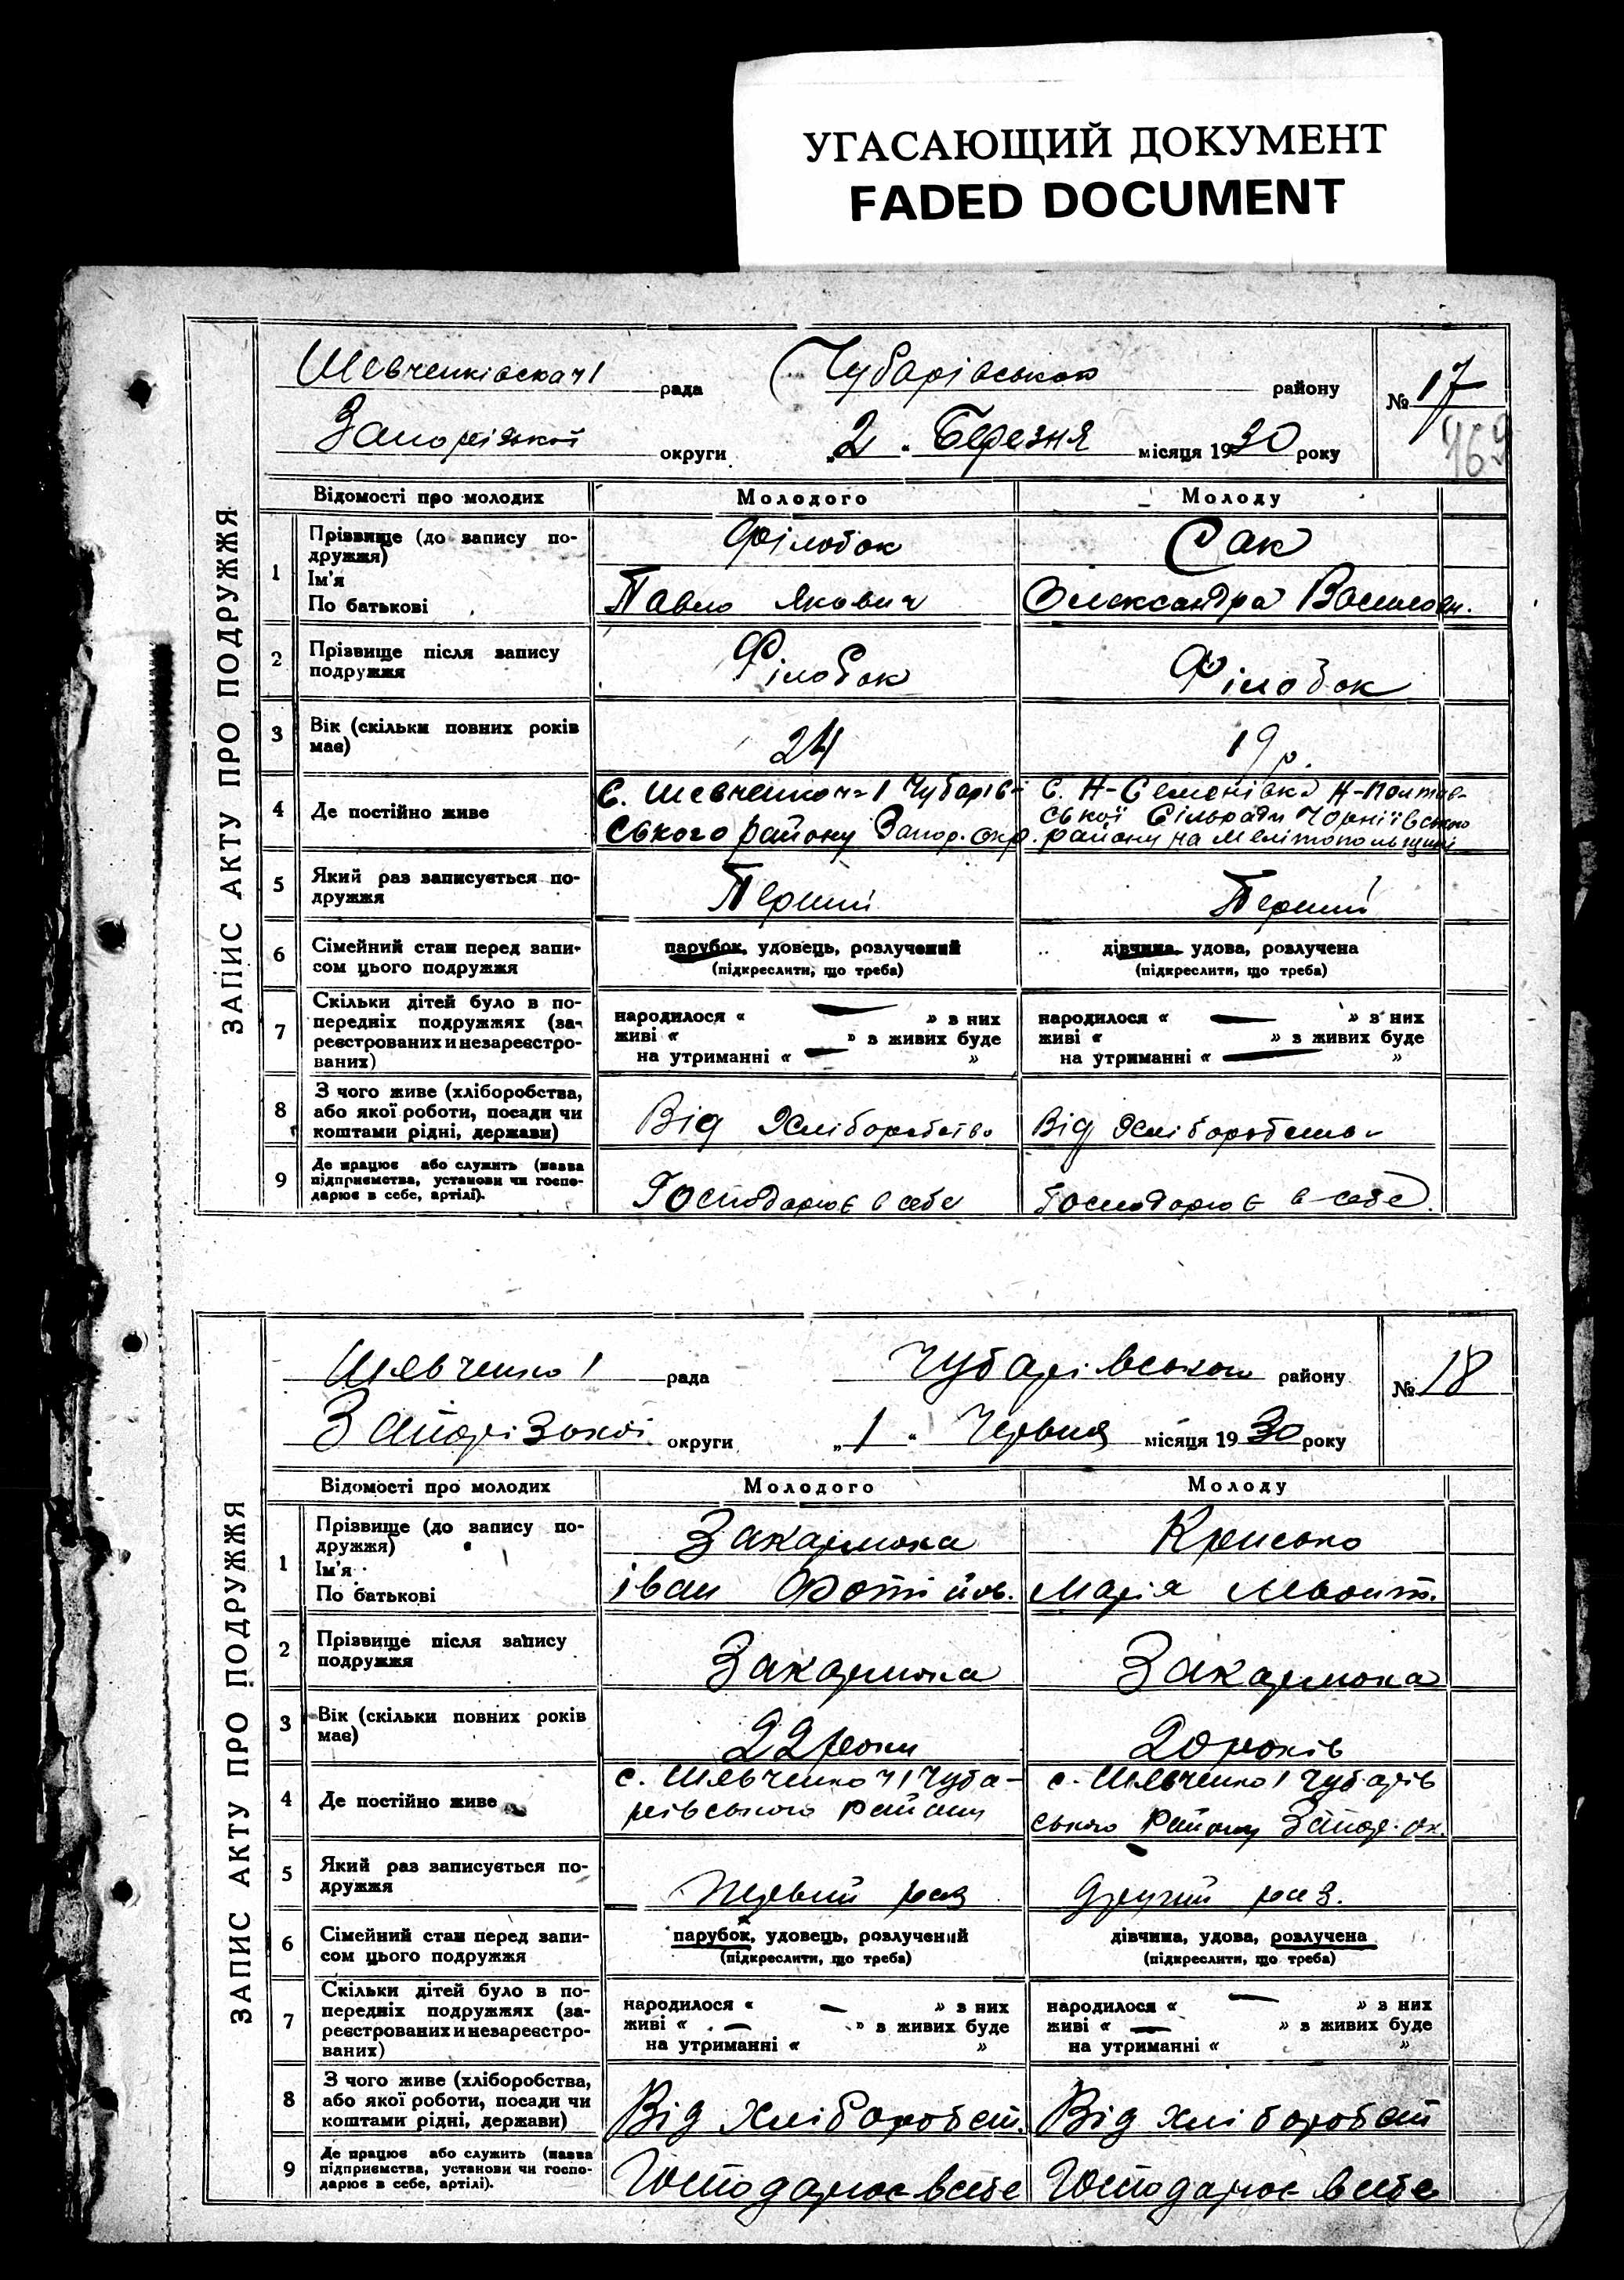 УГАСАЮЩИЙ ДОКУМЕНТ
FADED DOCUMENT
ЗАПИС АКТУ ПРО ПОДРУЖЖЯ
Шевченківська ч1 рада Чубарівського району № 17
169
Запорізької округи „2“ Березня місяця 1930 року
Відомості про молодих Молодого Молоду
1 Прізвище (до запису подружжя) Філобок Сак
Ім'я
По батькові Павло Якович Олександра Васильовн.
2 Прізвище після запису подружжя Філобок Філобок
3 Вік (скільки повних років має) 24 19 р.
4 Де постійно живе
С. Шевченко ч-1 Чубарів-
ського району Запор. окр.
С. Н-Семенівка Н-Полтав-
ської Сільради
району на Мелітопольщині
5 Який раз записується подружжя Перший Перший
6 Сімейний стан перед записом цього подружжя
парубок, удовець, розлучений дівчина, удова, розлучена
(підкреслити, що треба) (підкреслити, що треба)
7 Скільки дітей було в попередніх подружжях (зареєстрованих и незареєстрованих)
народилося « — » з них народилося « — » з них
живі « » з живих буде живі « » з живих буде
на утриманні « — » на утриманні « — »
8 З чого живе (хліборобства, або якої роботи, посади чи коштами рідні, держави) Від Хліборобства Від Хліборобства
9 Де працює або служить (назва підприємства, установи чи господарює в себе, артілі). Господарює в себе Господарює в себе.
ЗАПИС АКТУ ПРО ПОДРУЖЖЯ
Шевченко 1 рада Чубарівського району № 18
Запорізької округи „1“ Червня місяця 1930 року
Відомості про молодих Молодого Молоду
1 Прізвище (до запису подружжя)
Ім'я
По батькові Іван Фотійов. Марія
2 Прізвище після запису подружжя
3 Вік (скільки повних років має) 22 роки 20 років
4 Де постійно живе
с. Шевченко ч1 Чуба-
рівського району
с. Шевченко 1 Чубарів
ського Району Запор. ок.
5 Який раз записується подружжя Первий раз Другий раз.
6 Сімейний стан перед записом цього подружжя
парубок, удовець, розлучений дівчина, удова, розлучена
(підкреслити, що треба) (підкреслити, що треба)
7 Скільки дітей було в попередніх подружжях (зареєстрованих и незареєстрованих)
народилося « — » з них народилося « — » з них
живі « — » з живих буде живі « — » з живих буде
на утриманні « » на утриманні « »
8 З чого живе (хліборобства, або якої роботи, посади чи коштами рідні, держави) Від хліборобст. Від хліборобст
9 Де працює або служить (назва підприємства, установи чи господарює в себе, артілі). Господарює в себе Господарює в себе